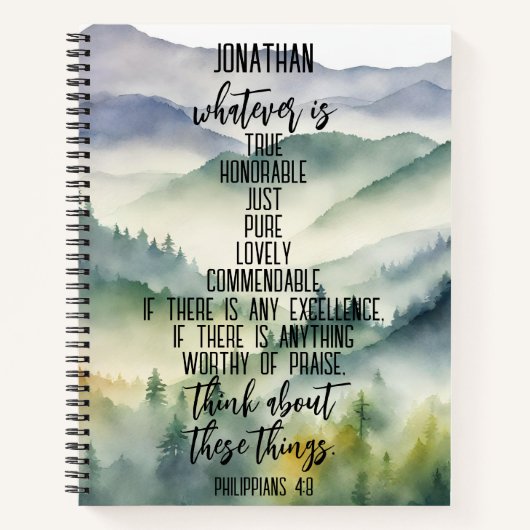 JONATHAN
whatever is
TRUE
HONORABLE
JUST
PURE
LOVELY
COMMENDABLE
IF THERE IS ANY EXCELLENCE,
IF THERE IS ANYTHING
WORTHY OF PRAISE,
think about
these things.
PHILIPPIANS 4:8